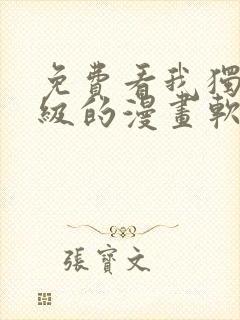 免費看我獨
級的漫畫軟
張寶文